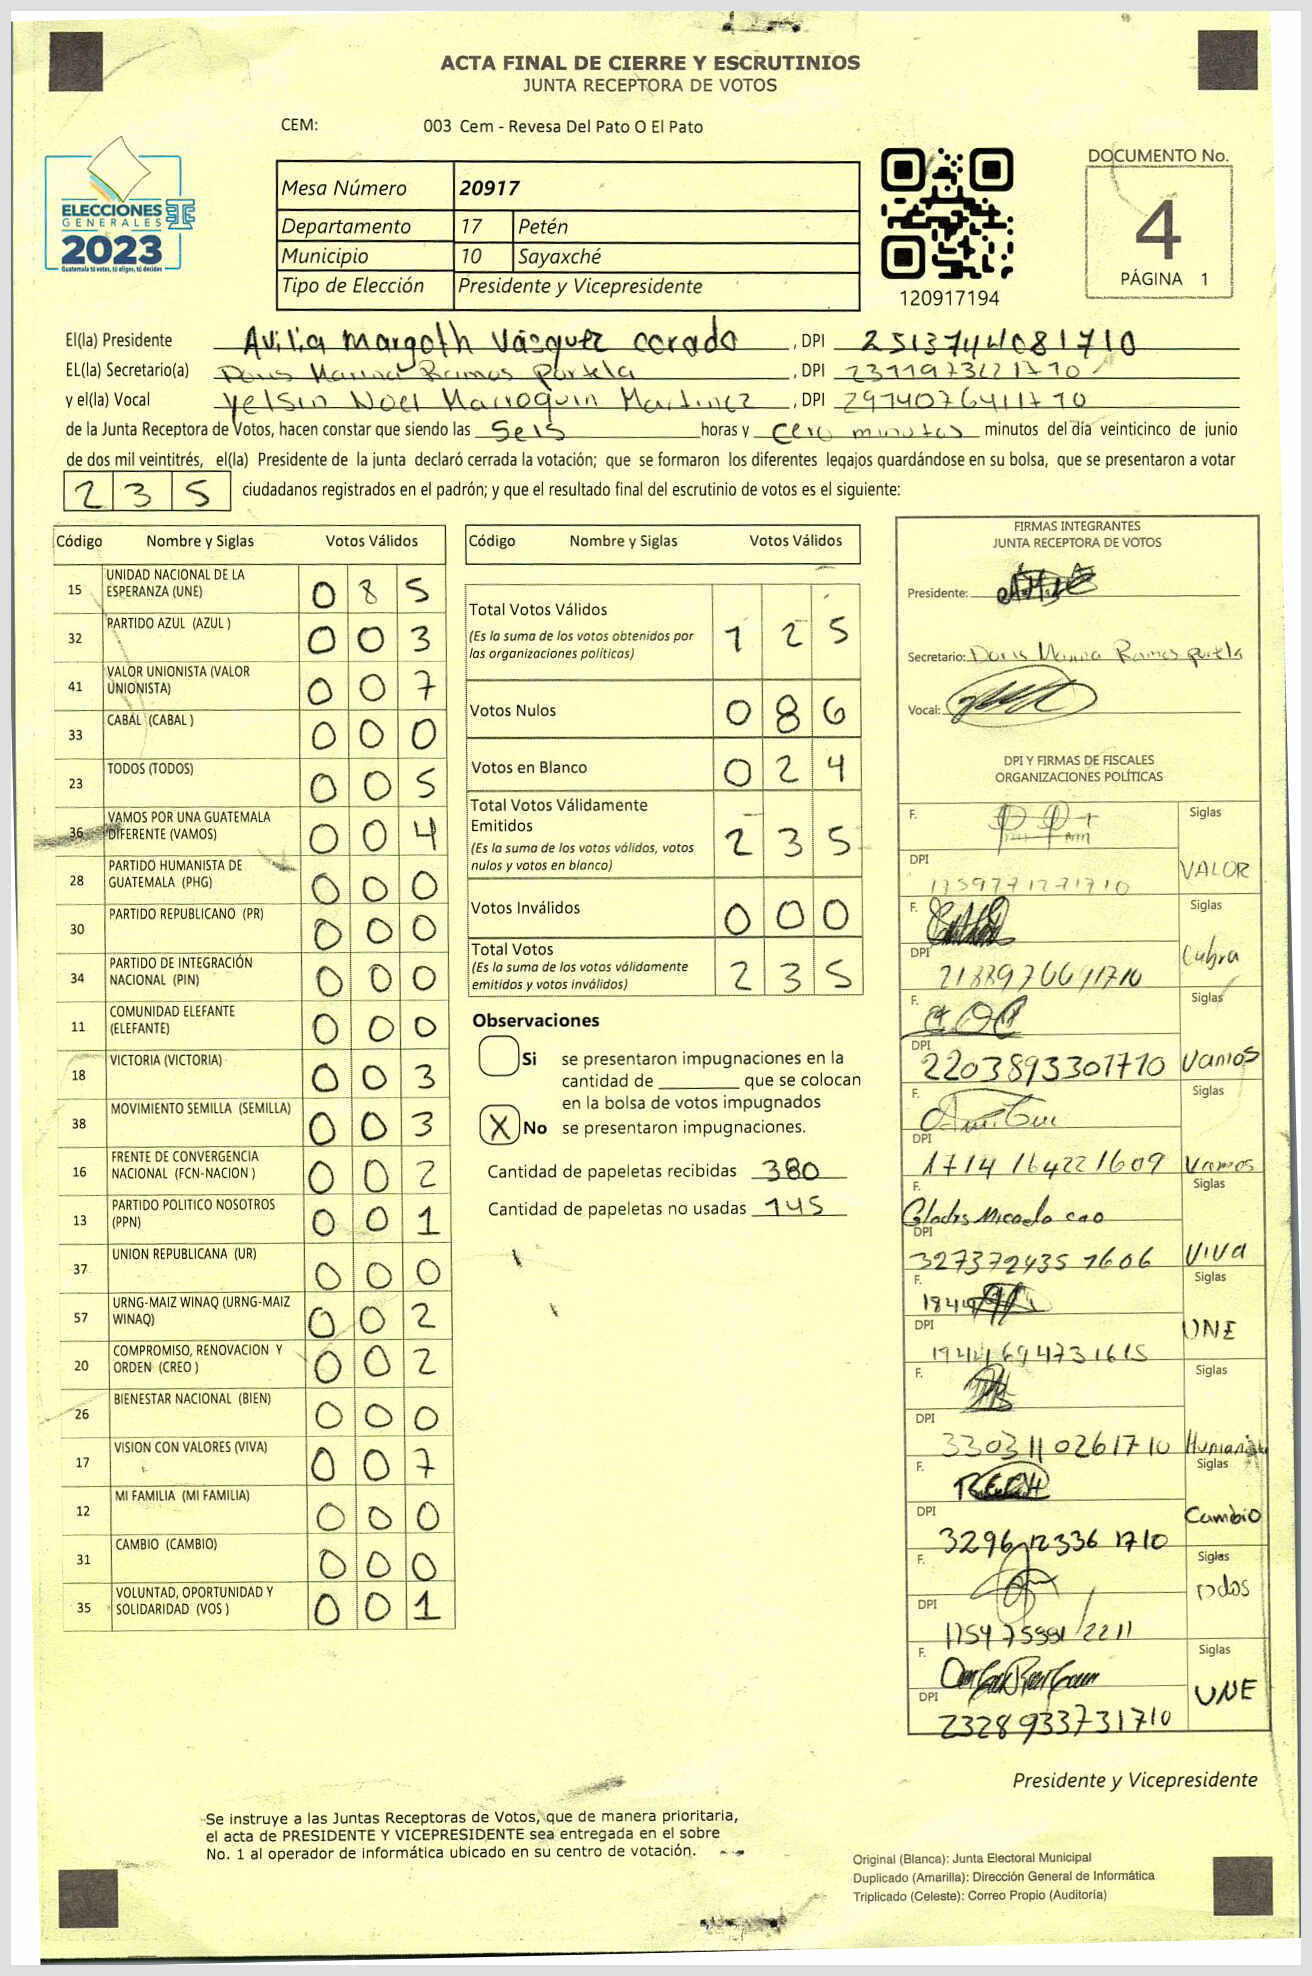 ACTA FINAL DE CIERRE Y ESCRUTINIOS
JUNTA RECEPTORA DE VOTOS
CEM: 003 Cem - Revesa Del Pato O El Pato
ELECCIONES
GENERALES
2023
Guatemala tú votas, tú eliges, tú decides
Mesa Número 20917
Departamento 17 Petén
Municipio 10 Sayaxché
Tipo de Elección Presidente y Vicepresidente
120917194
DOCUMENTO No.
4
PÁGINA 1
El(la) Presidente Avilia Margoth Vásquez corado, DPI 2513744081710
EL(la) Secretario(a) Doris Marina Ramos Portela, DPI
y el(la) Vocal Yelsin Noel Marroquin Martinez, DPI 2974076411710
de la Junta Receptora de Votos, hacen constar que siendo las Seis horas y cero minutos minutos del día veinticinco de junio
de dos mil veintitrés, el(la) Presidente de la junta declaró cerrada la votación; que se formaron los diferentes legajos guardándose en su bolsa, que se presentaron a votar
235 ciudadanos registrados en el padrón; y que el resultado final del escrutinio de votos es el siguiente:
Código Nombre y Siglas Votos Válidos
15 UNIDAD NACIONAL DE LA ESPERANZA (UNE) 0 8 5
32 PARTIDO AZUL (AZUL ) 0 0 3
41 VALOR UNIONISTA (VALOR UNIONISTA) 0 0 7
33 CABAL (CABAL ) 0 0 0
23 TODOS (TODOS) 0 0 5
36 VAMOS POR UNA GUATEMALA DIFERENTE (VAMOS) 0 0 4
28 PARTIDO HUMANISTA DE GUATEMALA (PHG) 0 0 0
30 PARTIDO REPUBLICANO (PR) 0 0 0
34 PARTIDO DE INTEGRACIÓN NACIONAL (PIN) 0 0 0
11 COMUNIDAD ELEFANTE (ELEFANTE) 0 0 0
18 VICTORIA (VICTORIA) 0 0 3
38 MOVIMIENTO SEMILLA (SEMILLA) 0 0 3
16 FRENTE DE CONVERGENCIA NACIONAL (FCN-NACION ) 0 0 2
13 PARTIDO POLITICO NOSOTROS (PPN) 0 0 1
37 UNION REPUBLICANA (UR) 0 0 0
57 URNG-MAIZ WINAQ (URNG-MAIZ WINAQ) 0 0 2
20 COMPROMISO, RENOVACION Y ORDEN (CREO ) 0 0 2
26 BIENESTAR NACIONAL (BIEN) 0 0 0
17 VISION CON VALORES (VIVA) 0 0 7
12 MI FAMILIA (MI FAMILIA) 0 0 0
31 CAMBIO (CAMBIO) 0 0 0
35 VOLUNTAD, OPORTUNIDAD Y SOLIDARIDAD (VOS ) 0 0 1
Código Nombre y Siglas Votos Válidos
Total Votos Válidos 1 2 5
(Es la suma de los votos obtenidos por
las organizaciones políticas)
Votos Nulos 0 8 6
Votos en Blanco 0 2 4
Total Votos Válidamente
Emitidos 2 3 5
(Es la suma de los votos válidos, votos
nulos y votos en blanco)
Votos Inválidos 0 0 0
Total Votos 2 3 5
(Es la suma de los votos válidamente
emitidos y votos inválidos)
Observaciones
Si se presentaron impugnaciones en la
cantidad de ________ que se colocan
en la bolsa de votos impugnados
X No se presentaron impugnaciones.
Cantidad de papeletas recibidas 380
Cantidad de papeletas no usadas 145
FIRMAS INTEGRANTES
JUNTA RECEPTORA DE VOTOS
Presidente:
Secretario: Doris Marina Ramos portela
Vocal:
DPI Y FIRMAS DE FISCALES
ORGANIZACIONES POLÍTICAS
F. Siglas
DPI VALOR
F. Siglas
DPI
F. Siglas
DPI 2203893301710 Vamos
F. Siglas
DPI 1714164221609 Vamos
F. Gladis Micaela cao Siglas
DPI 3273724351606 VIVA
F. Siglas
DPI 1944694731615 UNE
F. Siglas
DPI 3303110261710 Humanista
F. Siglas
DPI 3296123361710 Cambio
F. Siglas
DPI Todos
F. Siglas
DPI 2328933731710 UNE
Presidente y Vicepresidente
Se instruye a las Juntas Receptoras de Votos, que de manera prioritaria,
el acta de PRESIDENTE Y VICEPRESIDENTE sea entregada en el sobre
No. 1 al operador de informática ubicado en su centro de votación.
Original (Blanca): Junta Electoral Municipal
Duplicado (Amarilla): Dirección General de Informática
Triplicado (Celeste): Correo Propio (Auditoría)